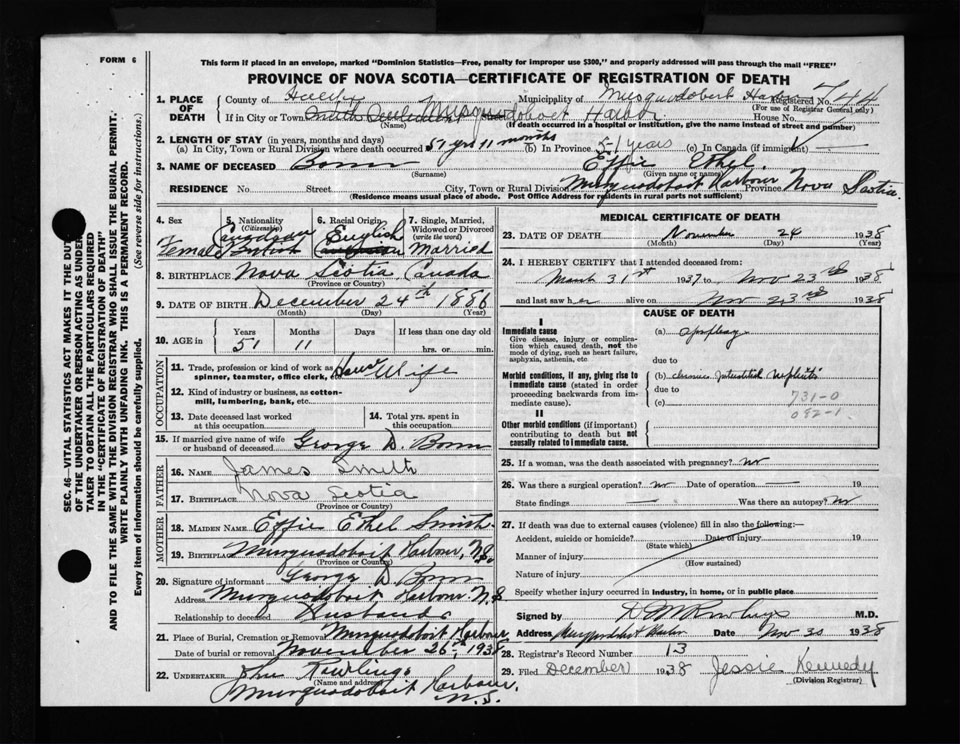 FORM 6
This form if placed in an envelope, marked "Dominion Statistics—Free, penalty for improper use $300," and properly addressed will pass through the mail "FREE"
PROVINCE OF NOVA SCOTIA—CERTIFICATE OF REGISTRATION OF DEATH
1. PLACE OF DEATH
County of Halifax Municipality of Musquodoboit Harbor Registered No. 744
(For use of Registrar General only)
If in City or Town Musquodoboit Harbor House No.
(Name) (If death occurred in a hospital or institution, give the name instead of street and number)
2. LENGTH OF STAY (in years, months and days)
(a) In City, Town or Rural Division where death occurred 51 yrs 11 months (b) In Province 51 years (c) In Canada (if immigrant) —
3. NAME OF DECEASED Bonn Effie Ethel.
(Surname) (Given name or names)
RESIDENCE No. Street City, Town or Rural Division Musquodoboit Harbour Province Nova Scotia.
(Residence means usual place of abode. Post Office Address for residents in rural parts not sufficient)
SEC. 46—VITAL STATISTICS ACT MAKES IT THE DUTY
OF THE UNDERTAKER OR PERSON ACTING AS UNDER-
TAKER TO OBTAIN ALL THE PARTICULARS REQUIRED
IN THE "CERTIFICATE OF REGISTRATION OF DEATH"
AND TO FILE THE SAME WITH THE DIVISION REGISTRAR WHO SHALL ISSUE THE BURIAL PERMIT.
WRITE PLAINLY WITH UNFADING INK. THIS IS A PERMANENT RECORD.
Every item of information should be carefully supplied. (See reverse side for instructions.)
4. Sex 5. Nationality (Citizenship) 6. Racial Origin 7. Single, Married, Widowed or Divorced (write the word)
Female Canadian British English Married
8. BIRTHPLACE Nova Scotia, Canada
(Province or Country)
9. DATE OF BIRTH December 24th 1886
(Month) (Day) (Year)
10. AGE in Years Months Days If less than one day old
51 11 hrs. or min.
OCCUPATION
11. Trade, profession or kind of work as spinner, teamster, office clerk, etc. House Wife
12. Kind of industry or business, as cotton-mill, lumbering, bank, etc.
13. Date deceased last worked at this occupation 14. Total yrs. spent in this occupation
15. If married give name of wife or husband of deceased George D. Bonn
FATHER
16. NAME James Smith
17. BIRTHPLACE Nova Scotia
(Province or Country)
MOTHER
18. MAIDEN NAME Effie Ethel Smith
19. BIRTHPLACE Musquodoboit Harbour, N.S.
(Province or Country)
20. Signature of informant George D. Bonn
Address Musquodoboit Harbour N.S
Relationship to deceased Husband
21. Place of Burial, Cremation or Removal Musquodoboit Harbour
Date of burial or removal November 26th, 1938
22. UNDERTAKER John Rowlings
(Name and address)
Musquodoboit Harbour. N.S.
MEDICAL CERTIFICATE OF DEATH
23. DATE OF DEATH November 24 1938
(Month) (Day) (Year)
24. I HEREBY CERTIFY that I attended deceased from:
March 31st 1937 to Nov 23rd 1938
and last saw her alive on Nov 23rd 1938
CAUSE OF DEATH
I
Immediate cause
Give disease, injury or complication which caused death, not the mode of dying, such as heart failure, asphyxia, asthenia, etc
(a) apoplexy
due to
Morbid conditions, if any, giving rise to immediate cause (stated in order proceeding backwards from immediate cause).
(b) chronic interstitial nephritis
due to
(c) 731-0
082-1
II
Other morbid conditions (if important) contributing to death but not causally related to immediate cause.
25. If a woman, was the death associated with pregnancy? no
26. Was there a surgical operation? no Date of operation — 19
State findings — Was there an autopsy? no
27. If death was due to external causes (violence) fill in also the following:—
Accident, suicide or homicide? Date of injury 19
(State which)
Manner of injury
(How sustained)
Nature of injury
Specify whether injury occurred in Industry, in home, or in public place
Signed by D M Rowlings M.D.
Address Musquodoboit Harbor Date Nov 30 1938
28. Registrar's Record Number 13
29. Filed December 1938 Jessie Kennedy
(Division Registrar)